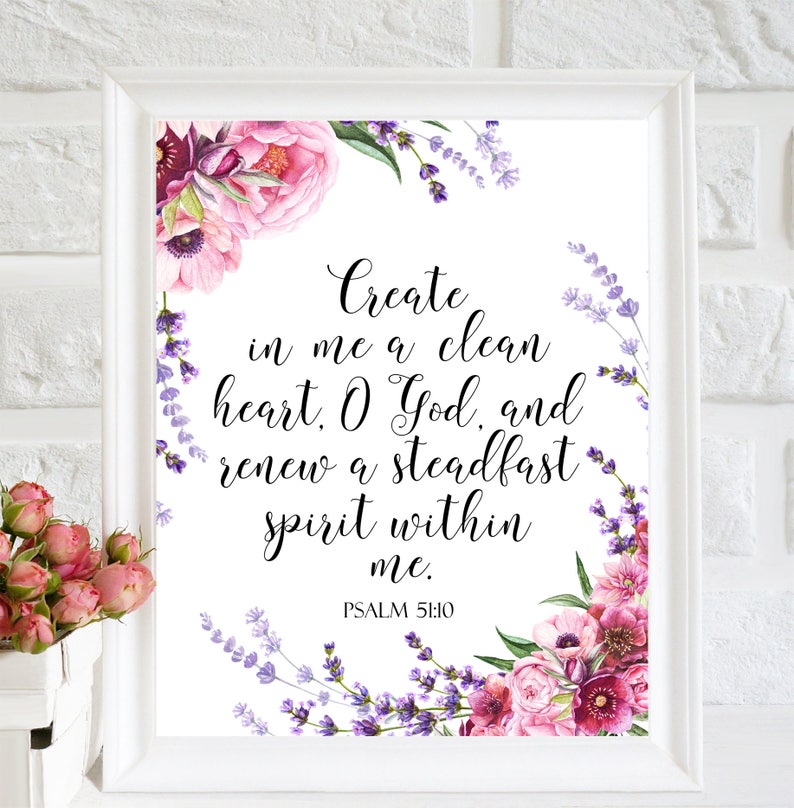 Create
in me a clean
heart, O God, and
renew a steadfast
spirit within
me.
PSALM 51:10